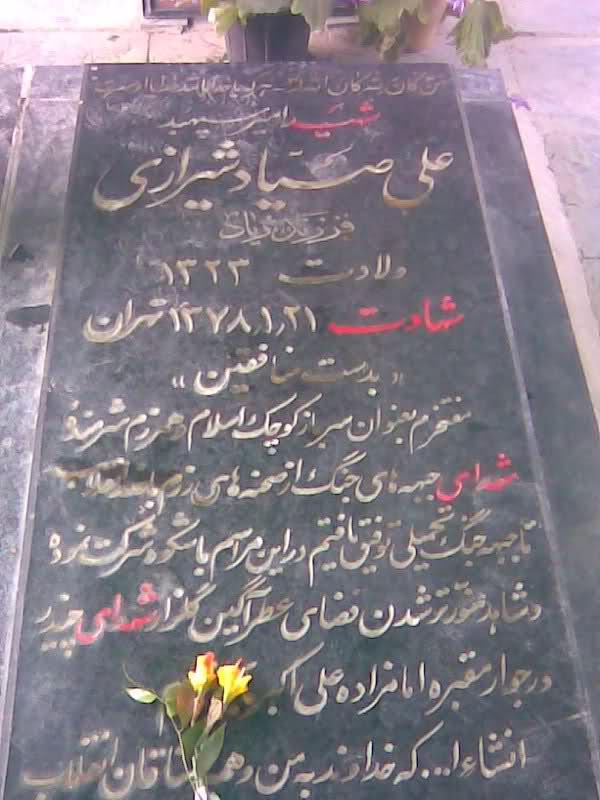 شهید امیر سپهبد
علی صیاد شیرازی
فرزند زیاد
ولادت ۱۳۲۳
شهادت ۱۳۷۸٫۱٫۲۱ تهران
«بدست منافقین»
مفتخرم بعنوان سرباز کوچک اسلام و همرزم شرمنده
شهدای جبهه های جنگ از صحنه های رزم ضد انقلاب
تا جبهه جنگ تحمیلی توفیق یافتم در این مراسم باشکوه شرکت نموده
و شاهد منورتر شدن فضای عطرآگین گلزار شهدای چیذر
در جوار مقبره امامزاده علی اکبر
انشاءا... که خداوند به من و همه مشتاقان انقلاب